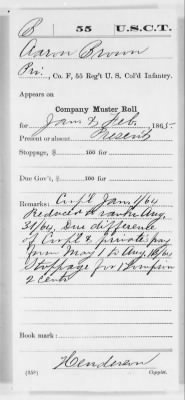 B 55 U.S.C.T.
Aaron Brown
Pvt., Co. F, 55 Reg't U. S. Col'd Infantry.
Appears on
Company Muster Roll
for Jan & Feb, 1865.
Present or absent Present
Stoppage, $ 100 for
Due Gov't, $ 100 for
Remarks: Corp'l Jan 1/64
Reduced to ranks Aug.
31/64. Due difference
of Corp'l & private pay
from May 1 to Aug 31/64
Stoppage for 1 Tompion
2 cents
Book mark:
Henderson
(358) Copyist.